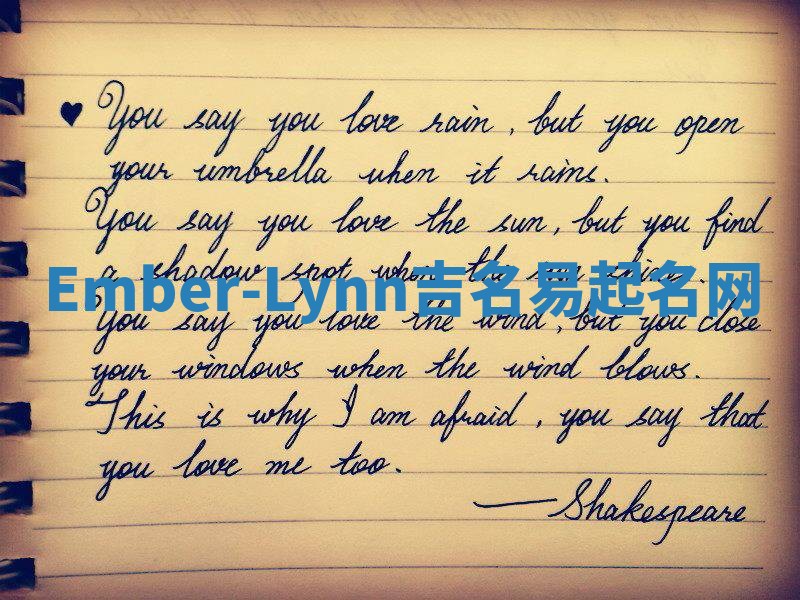 ♥ You say you love rain, but you open
your umbrella when it rains.
You say you love the sun, but you find
a shadow spot when the sun shines.
Ember-Lynn吉名易起名网
You say you love the wind, but you close
your windows when the wind blows.
This is why I am afraid, you say that
you love me too.
—Shakespeare